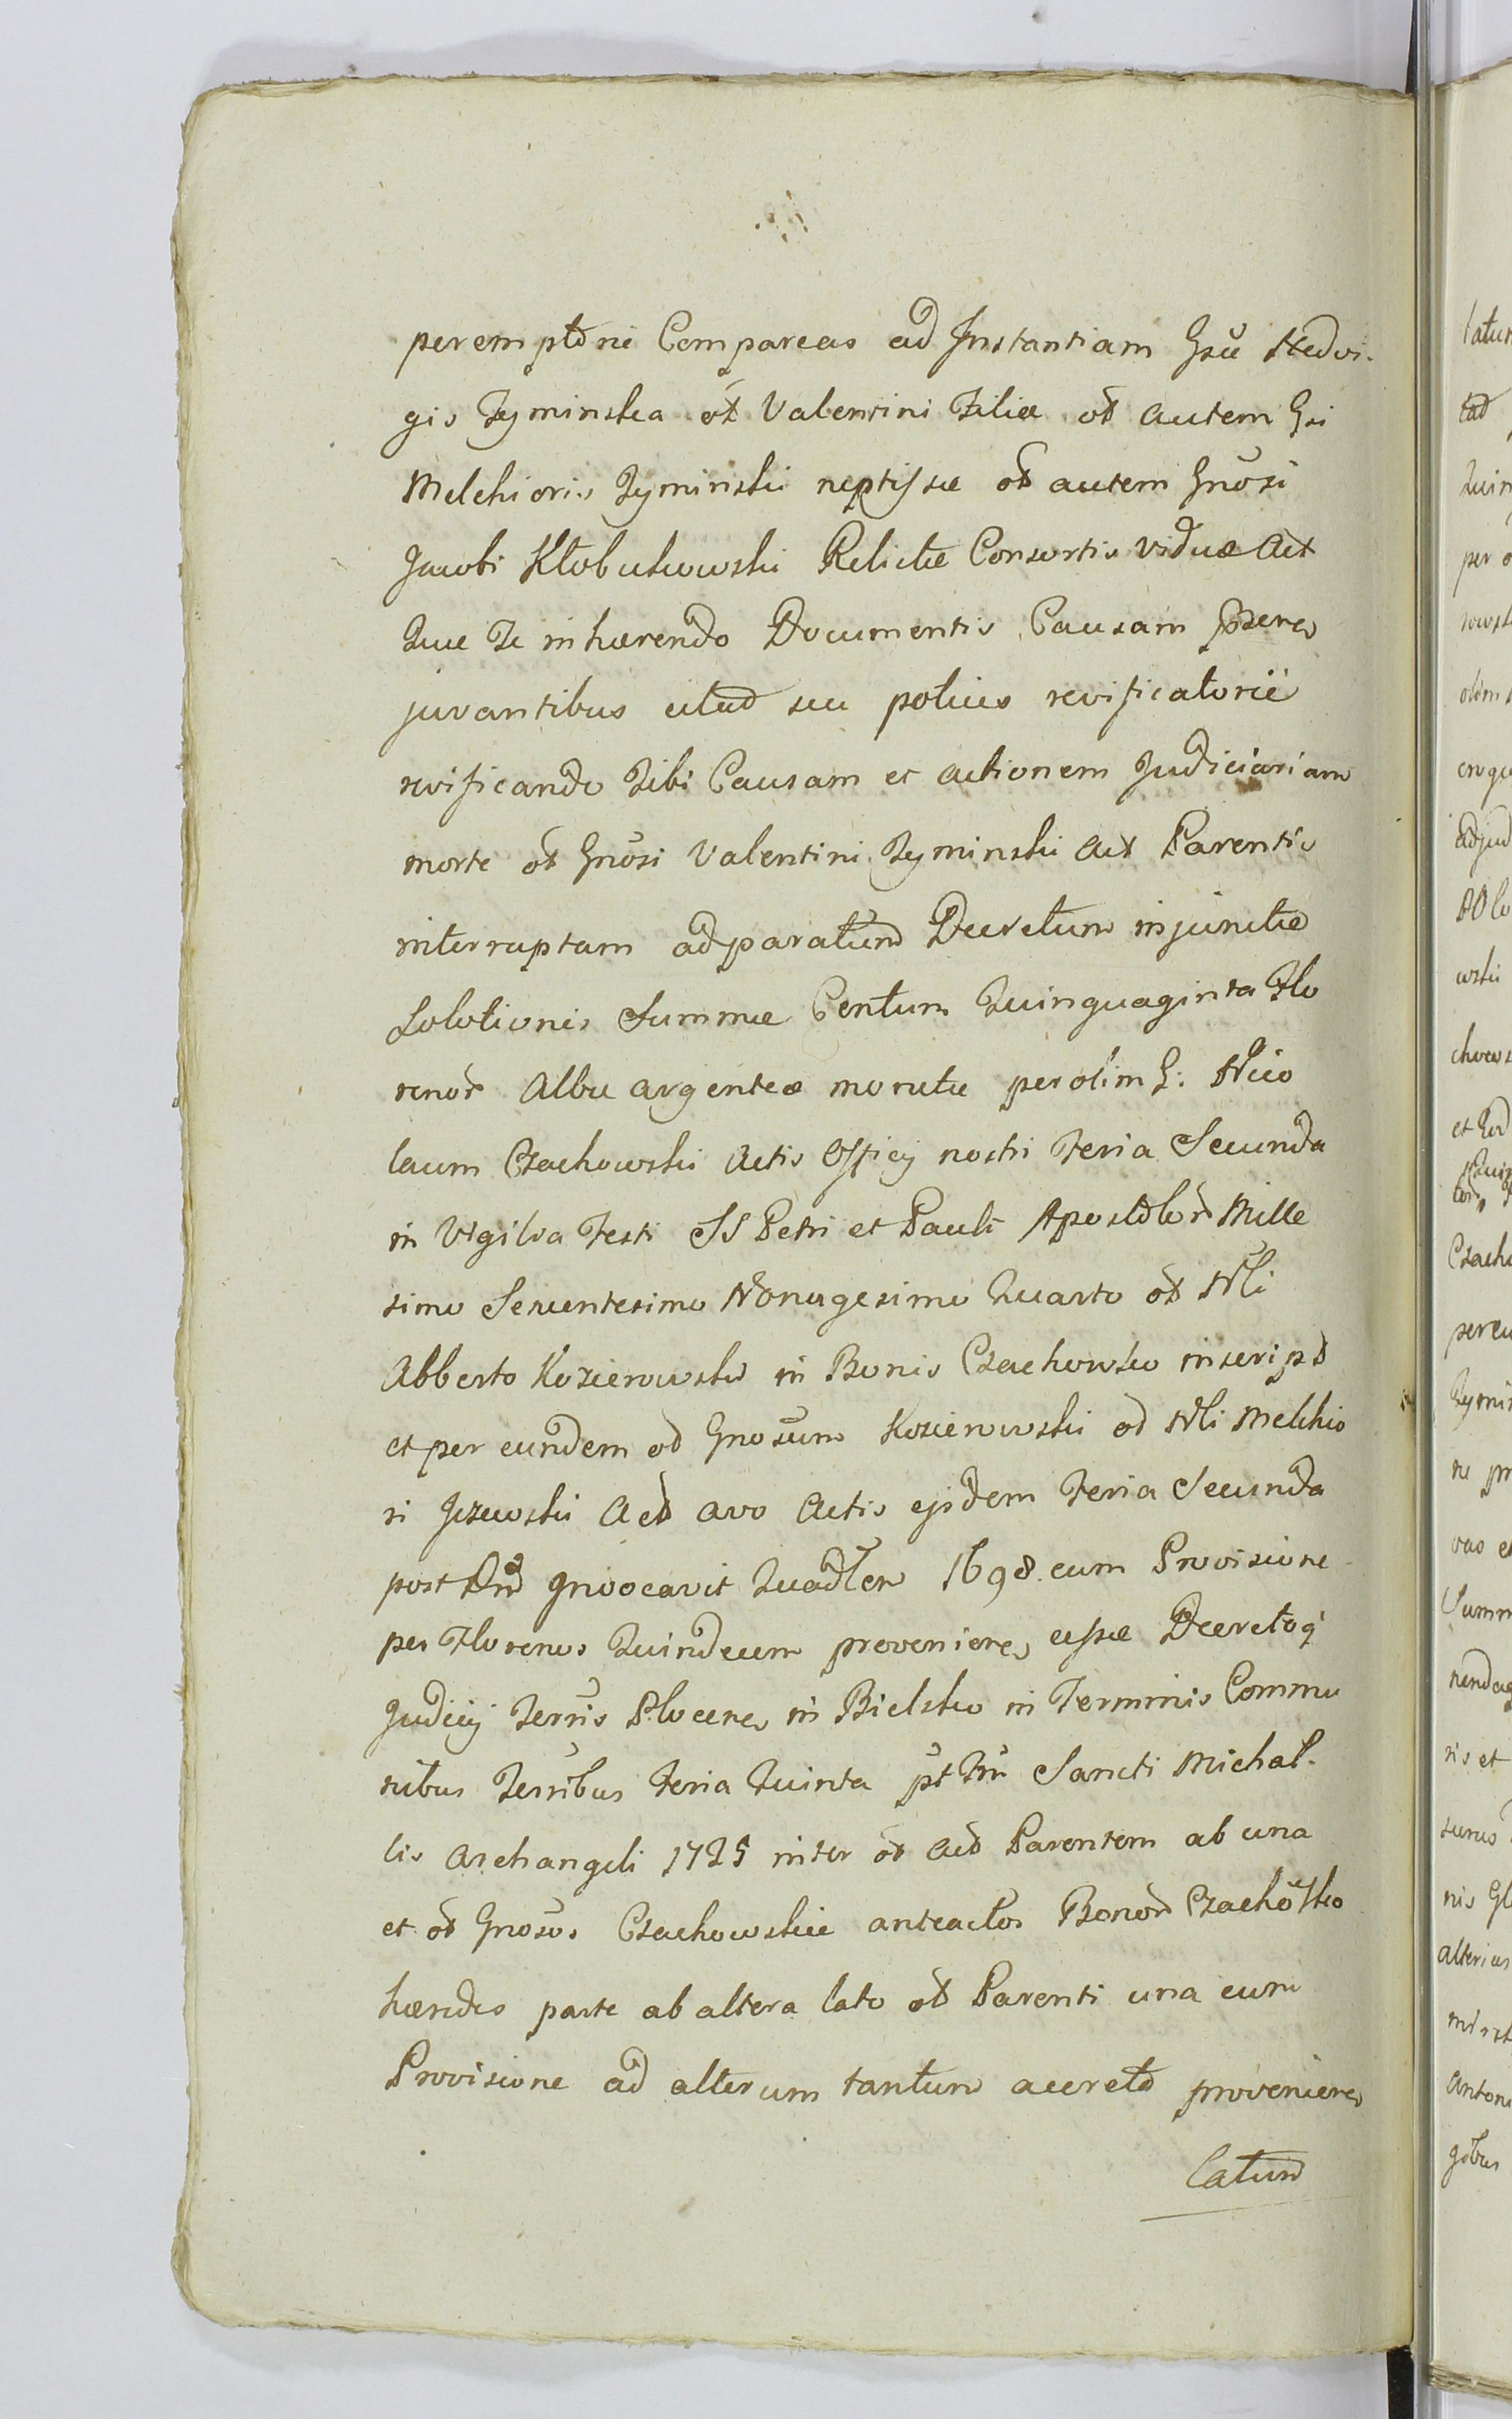 peremptorie Compareas ad Instantiam Gsæ Hedvi-
gis Zyminska ol Valentini Filiæ ol autem Gsi
Melchioris Zyminski neptisque ol autem Gnosi
Jacobi Kłobukowski Relictæ Consortis viduæ Act
Quæ Te inhærendo Documentis Causam pserem
juvantibus utend seu potius revificatorie
revificando Tibi Causam et actionem Judiciariam
morte ol Gnosi Valentini Zyminski Act Parentis
interruptam ad paratum Decretum injunctæ
Solutionis Summæ Centum Quinquaginta Flo
renor Albæ argenteæ monetæ per olim G: Nico
laum Czachowski Actis Officij nostri Feria Secunda
in Vigilia Festi SS Petri et Pauli Apostolor Mille
simo Sexcentesimo Nonagesimo Quarto ol Nli
Alberto Kozierowski in Bonis Czachowsko inscript
et per eundem ol Gnosum Kozierowski ol Nli Melchio
ri Jezewski Act avo Actis ejsdem Feria Secunda
post Dnicam Invocavit Quadlem 1698. cum Provisione
per Florenos Quindecim proveniene, cessæ Decretoq
Judicij Terris Plocene, in Bielsko in Terminis Commu
nibus Terribus Feria Quinta pt Fm Sancti Michal-
lis Archangeli 1725 inter ol Act Parentem ab una
et ol Gnosos Czachowskie anteactos Bonor Czachosko
hæredes parte ab altera lato ol Parenti una cum
Provisione ad alterum tantum accreto proveniene,
latum